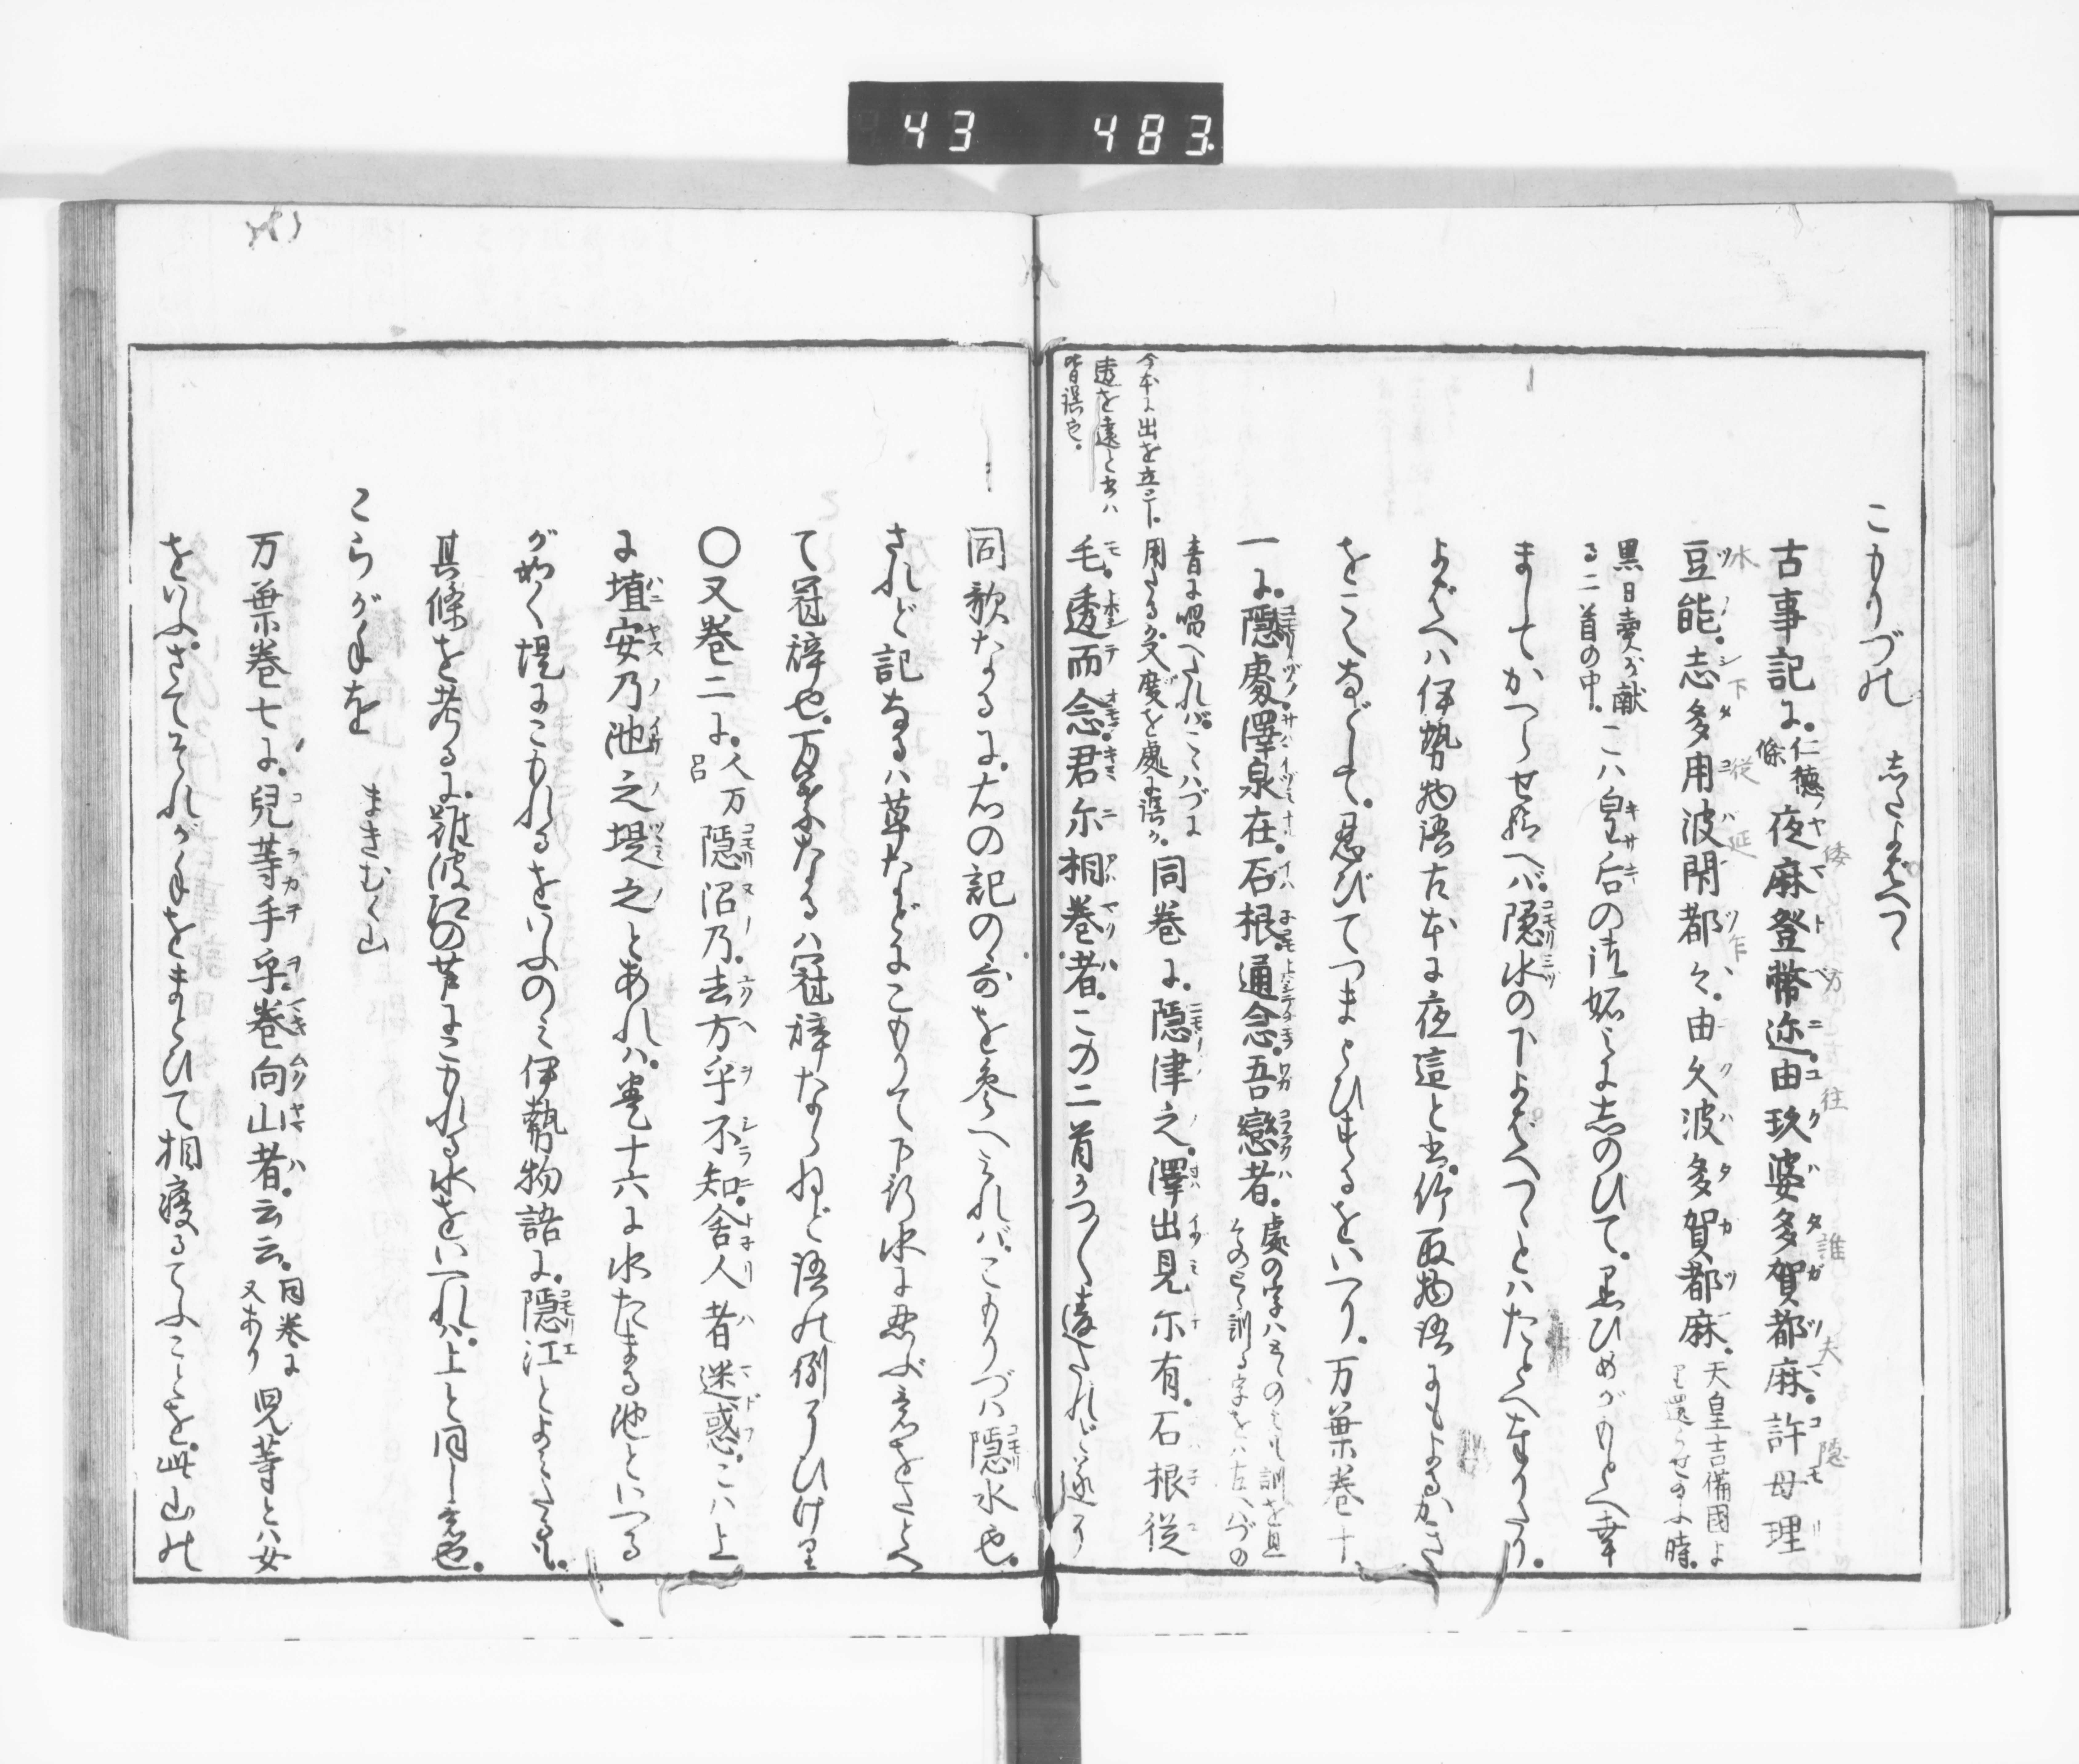 43 483
こもりづの　志たよばへつゝ
古事記に。仁徳條夜麻登幣邇由玖婆多賀都麻。許母理
豆能。志多用波閇都々。由久波多賀都麻。天皇吉備國よ
り還らせ給ふ時。
黒日賣が献
る二首の中。こハ皇后の御妬みに志のひて。黒ひめがもとへ幸
ましてかへらせ給へバ。隠水の下よばへつゝとハたとへ奉りたり。
よばへハ伊勢物語古本に夜這と書。竹取物語にもよるかき
をこえなどして。忍びてつまとひするをいへり。万葉巻十
一に。隠處澤泉在。石根通念。吾戀者。處の字ハ
同巻に。隠津之。澤出見尓有。石根従
今本に出を立に
透を遠と書ハ
皆誤也。
毛。透而念君尓相巻者。この二首
同歌なるに。右の記の哥を参へみれバ。こもりづハ隠水也。
されど記なるハ草などにこもりて下行水に忍ぶ意をたとへ
て冠辞也。万葉なるハ冠辞ならねど語の例にひけり
〇又巻二に。人万呂隠沼乃。去方乎不知。舎人者迷惑。こハ上
に埴安乃池之堤之とあれハ。巻十六に水たまる池といへる
が如く堤にこもれるをいふのミ伊勢物語に。隠江とよみたるも。
其條を考るに。難波江の芦にこもれる水をいへれハ。上と同し意也。
こらが手を　まきむく山
万葉巻七に。兒等手乎。巻向山者。云云。同巻に
又あり兒等とハ女
をいふ。さてそれが手をまとひて相寝るてふことを。此山の